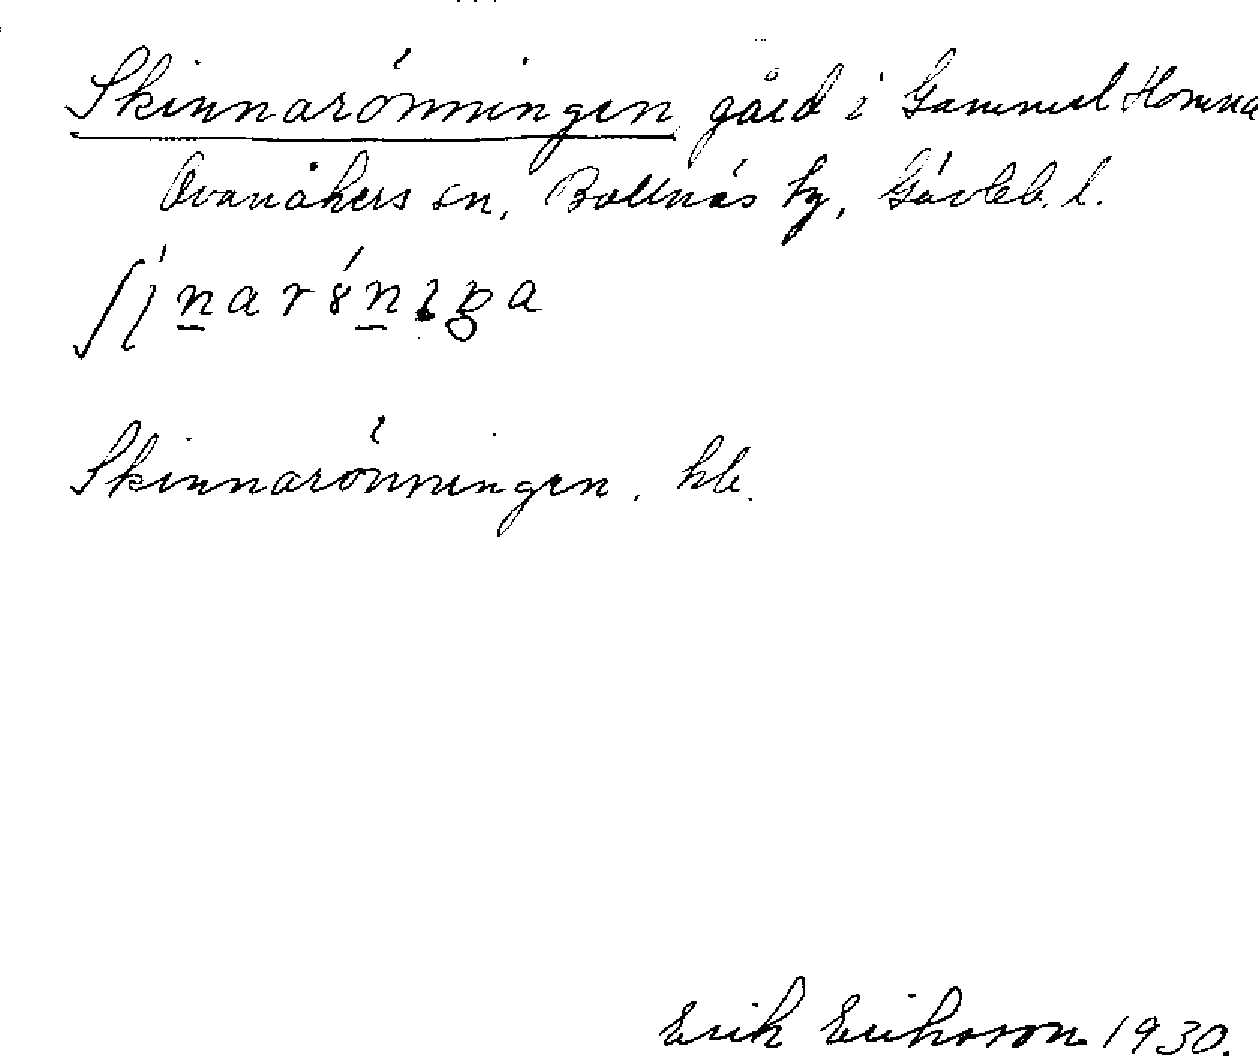 Skinnarönningen gård i Gammel Homna
Ovanåkers sn, Bollnäs tg, Gävleb. l.
Skinnarönningen. hb.
Erik Eriksson 1930.